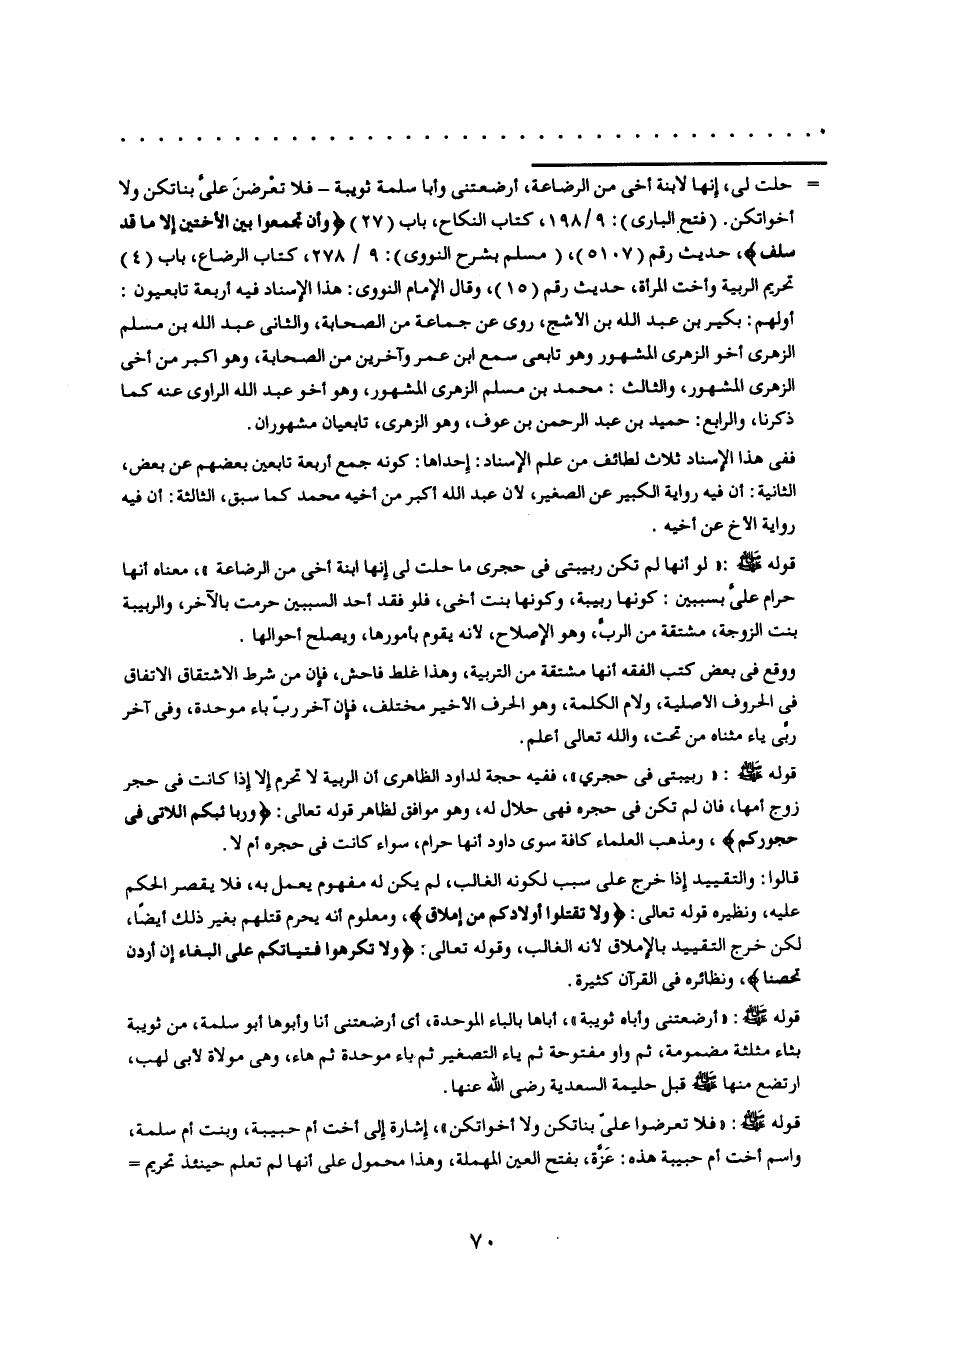 . . . . . . . . . . . . . . . . . . . . . . . . . . . . . . . . . . . . . .
= حلت لى، إنها لابنة أخى من الرضاعة، أرضعتنى وأبا سلمة ثويبة – فلا تعْرضنَ علىَّ بناتكن ولا
أخواتكن. (فتح البارى): ٩/ ١٩٨، كتاب النكاح، باب (٢٧) ﴿وأن تجمعوا بين الأختين إلا ما قد
سلف﴾، حديث رقم (٥١٠٧)، ( مسلم بشرح النووى): ٩ / ٢٧٨، كتاب الرضاع، باب (٤)
تحريم الربية وأخت المرأة، حديث رقم (١٥)، وقال الإمام النووى: هذا الإسناد فيه أربعة تابعيون :
أولهم: بكير بن عبد الله بن الأشج، روى عن جماعة من الصحابة، والثانى عبد الله بن مسلم
الزهرى أخو الزهرى المشهور وهو تابعى سمع ابن عمر وآخرين من الصحابة، وهو اكبر من أخى
الزهرى المشهور، والثالث : محمد بن مسلم الزهرى المشهور، وهو أخو عبد الله الراوى عنه كما
ذكرنا، والرابع: حميد بن عبد الرحمن بن عوف، وهو الزهرى، تابعيان مشهوران.
ففى هذا الإسناد ثلاث لطائف من علم الإسناد: إحداها: كونه جمع أربعة تابعين بعضهم عن بعض،
الثانية: أن فيه رواية الكبير عن الصغير، لأن عبد الله أكبر من أخيه محمد كما سبق، الثالثة: أن فيه
رواية الأخ عن أخيه .
قوله ﷺ :« لو أنها لم تكن ربيبتى فى حجرى ما حلت لى إنها ابنة أخى من الرضاعة »، معناه أنها
حرام علىَّ بسببين : كونها ربيبة، وكونها بنت أخى، فلو فقد أحد السببين حرمت بالآخر، والربيبة
بنت الزوجة، مشتقة من الربِّ، وهو الإصلاح، لأنه يقوم بأمورها، ويصلح أحوالها .
ووقع فى بعض كتب الفقه أنها مشتقة من التربية، وهذا غلط فاحش، فإن من شرط الاشتقاق الاتفاق
فى الحروف الأصلية، ولام الكلمة، وهو الحرف الأخير مختلف، فإن آخر ربّ باء موحدة، وفى آخر
ربَّى ياء مثناه من تحت، والله تعالى أعلم.
قوله ﷺ : « ربيبتى فى حجري»، ففيه حجة لداود الظاهرى أن الربية لا تحرم إلا إذا كانت فى حجر
زوج أمها، فان لم تكن فى حجره فهى حلال له، وهو موافق لظاهر قوله تعالى: ﴿وربا ئبكم اللاتى فى
حجوركم﴾ ، ومذهب العلماء كافة سوى داود أنها حرام، سواء كانت فى حجره أم لا.
قالوا: والتقييد إذا خرج على سبب لكونه الغالب، لم يكن له مفهوم يعمل به، فلا يقصر الحكم
عليه، ونظيره قوله تعالى: ﴿ولا تقتلوا أولادكم من إملاق﴾، ومعلوم أنه يحرم قتلهم بغير ذلك أيضًا،
لكن خرج التقييد بالإملاق لأنه الغالب، وقوله تعالى: ﴿ولا تكرهوا فتياتكم على البغاء إن أردن
تحصنا﴾، ونظائره فى القرآن كثيرة.
قوله ﷺ : «أرضعتنى وأباه ثويبة»، أباها بالباء الموحدة، أى أرضعتنى أنا وأبوها أبو سلمة، من ثويبة
بثاء مثلثة مضمومة، ثم واو مفتوحة ثم ياء التصغير ثم باء موحدة ثم هاء، وهى مولاة لأبى لهب،
ارتضع منها ﷺ قبل حليمة السعدية رضى الله عنها.
قوله ﷺ : «فلا تعرضوا علىّ بناتكن ولا أخواتكن»، إشارة إلى أخت أم حبيبة، وبنت أم سلمة،
واسم أخت أم حبيبة هذه: عَزَّة، بفتح العين المهملة، وهذا محمول على أنها لم تعلم حينئذ تحريم =
٧٠